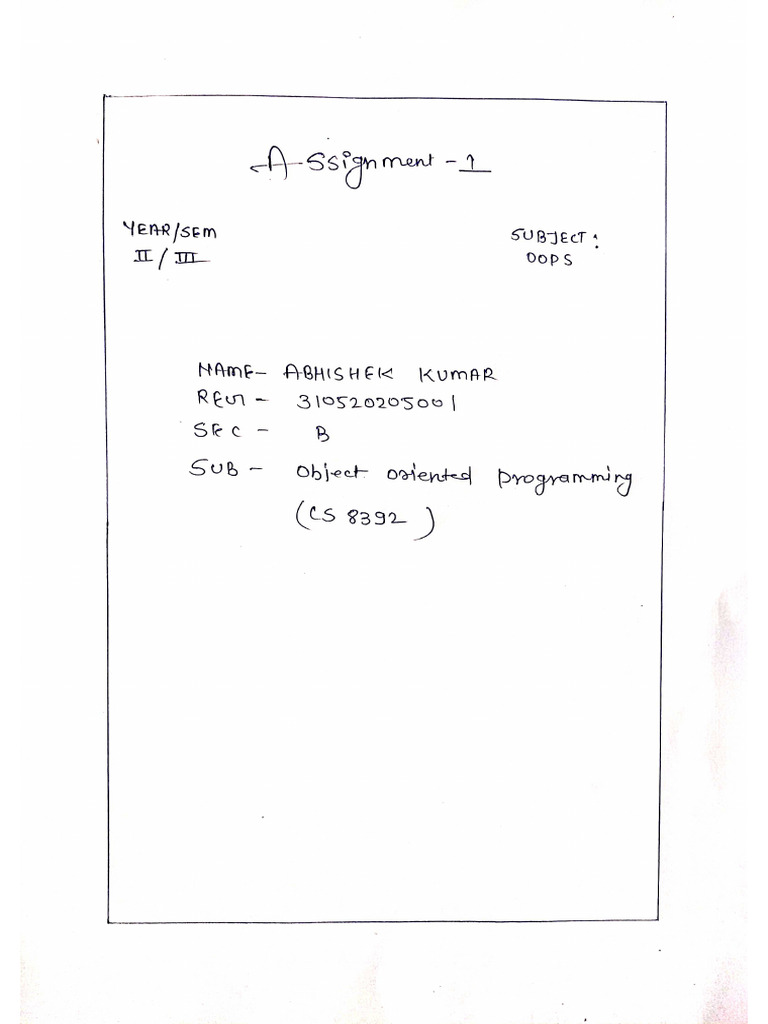 Assignment - 1
YEAR/SEM
II / III
SUBJECT:
OOPS
NAME- ABHISHEK KUMAR
REG - 310520205001
SEC - B
SUB - Object oriented programming
(CS 8392)